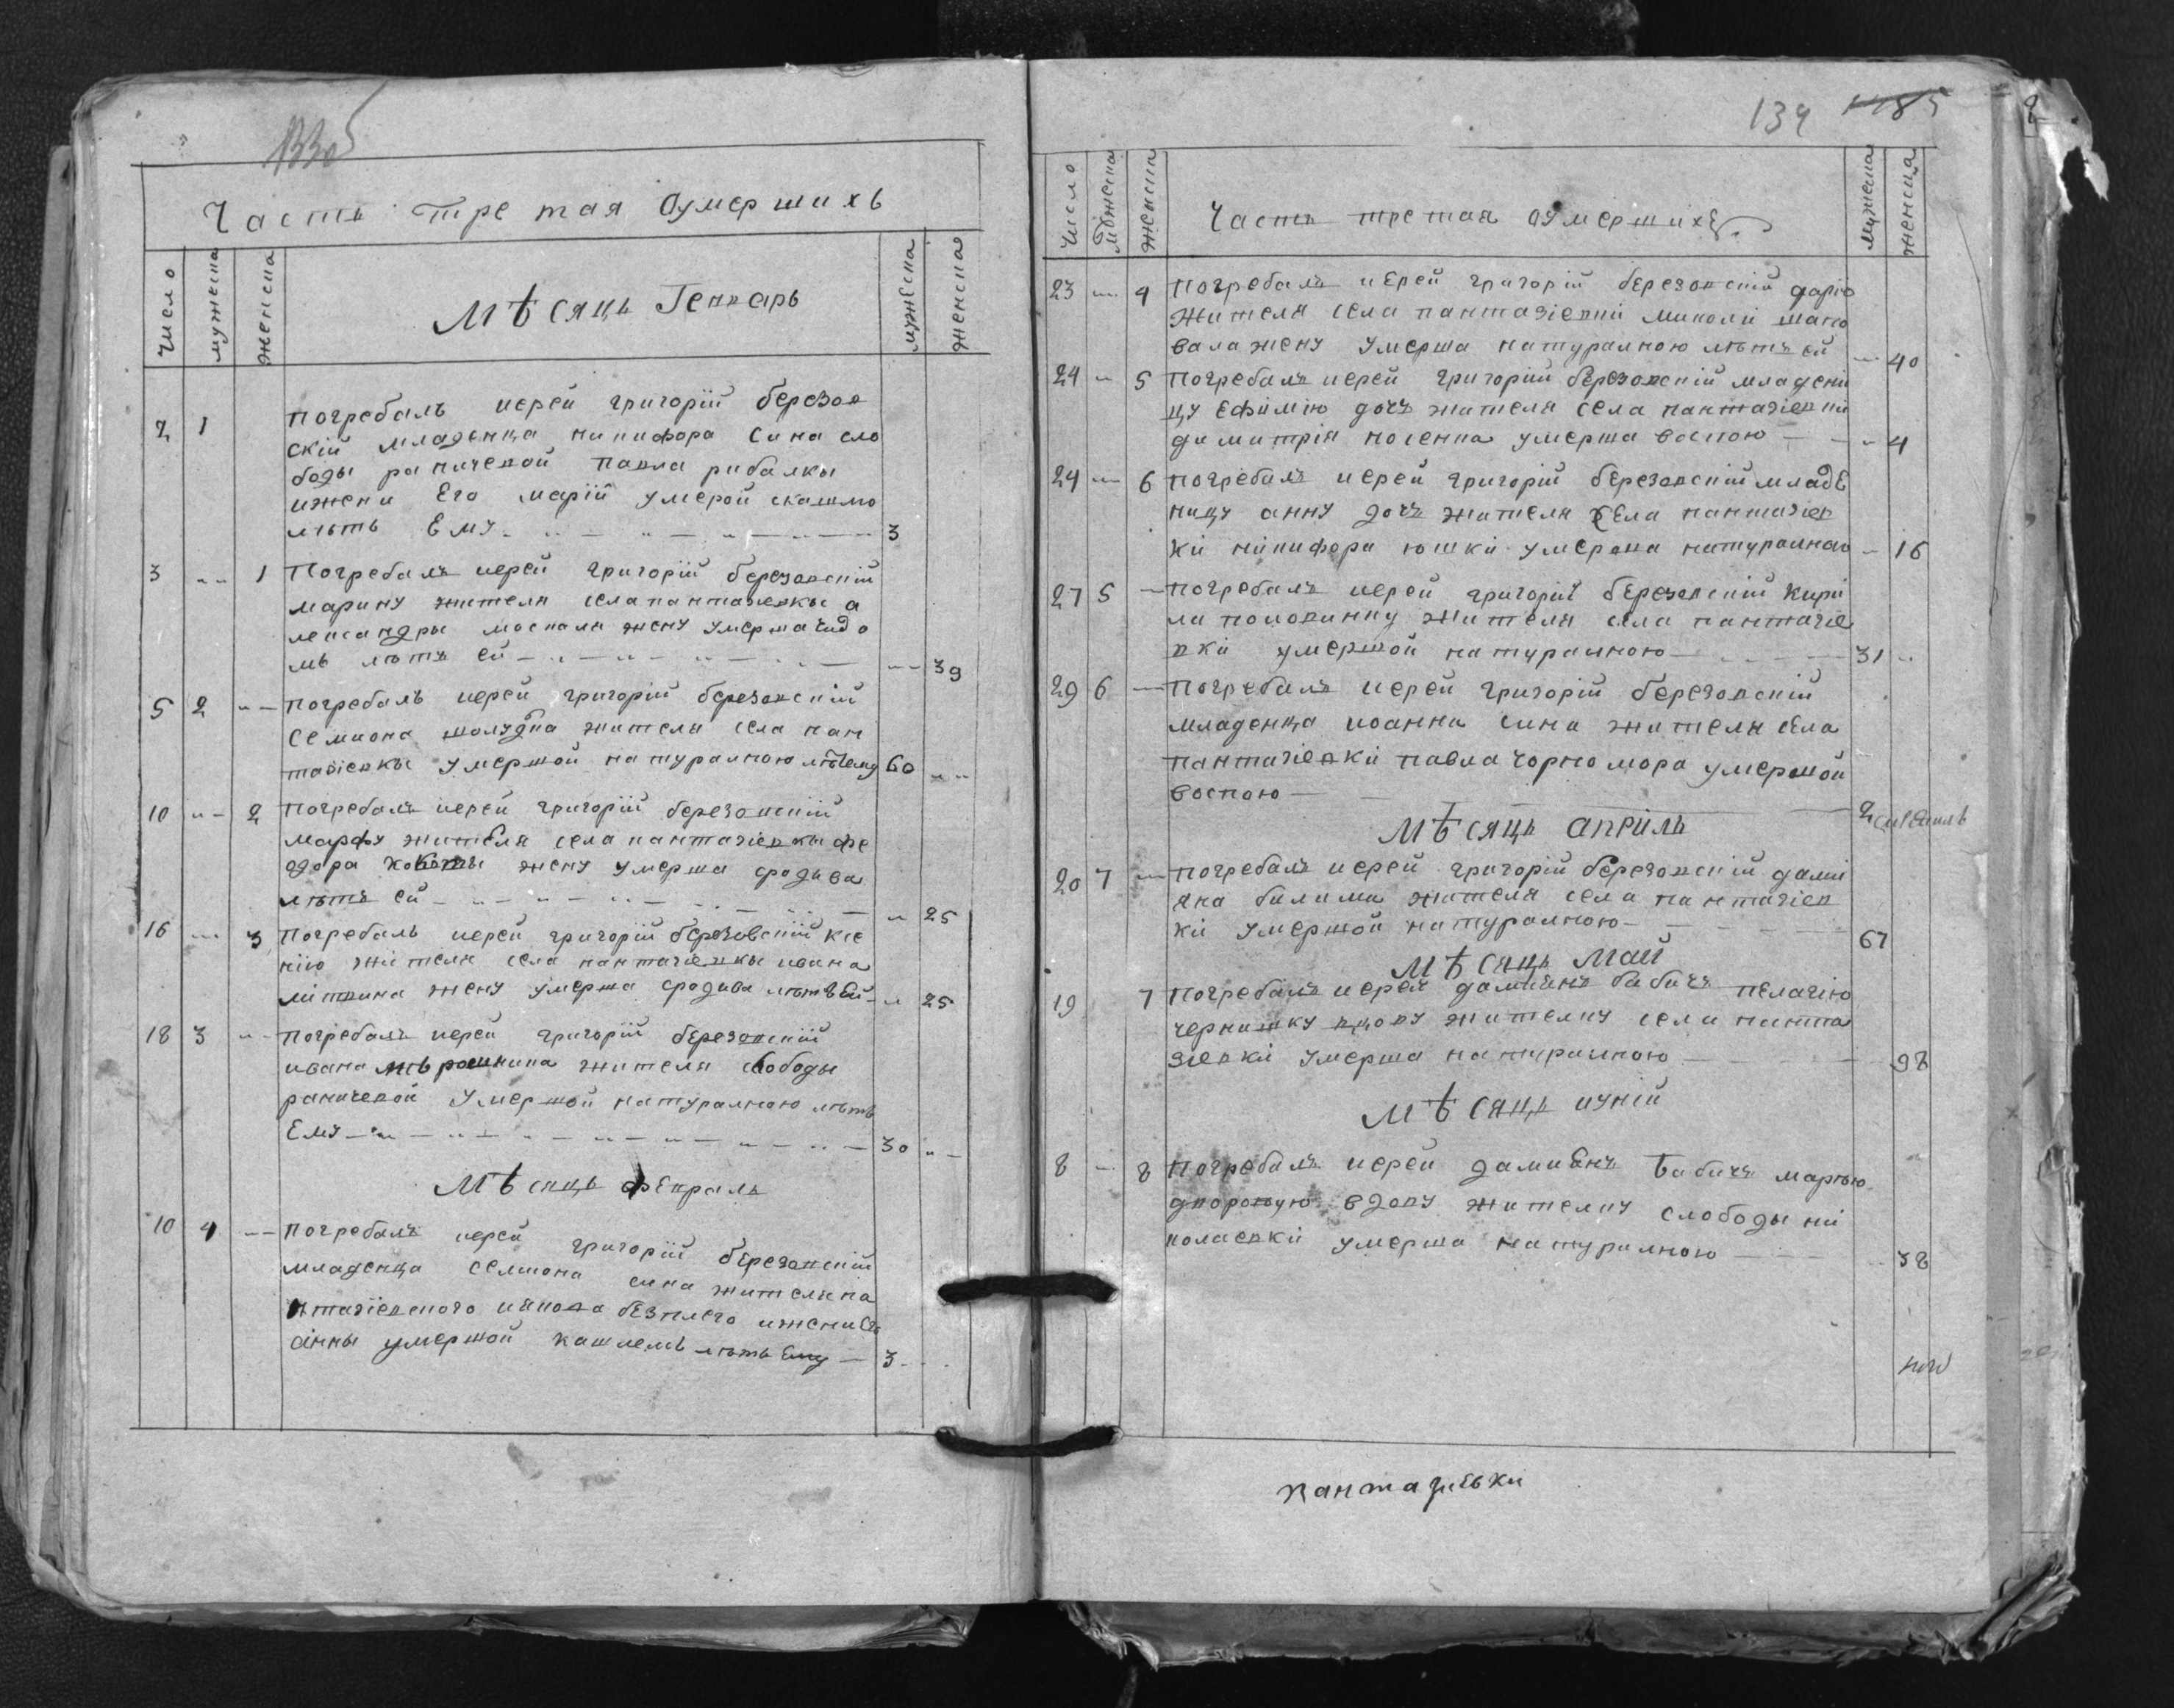 Часть третая оумершихъ
число мужеска женска
Мѣсяць Генварь
мужеска женска
2 1 погребалъ иерей григорій березов
скій младенца никифора сина сло
боды раничевой павла рибалкы
ижени Его марій умерой скашлю
лѣть Ему 3
3 1 Погребалъ иерей григорій березовскій
марину жителя села пантазіевкы а
лександры москаля жену умерша чидо
мъ лѣтъ ей 39
5 2 погребалъ иерей григорій березовскій
семиона шолудка жителя села пан
тазіевкы умершой натуралною лѣтъ ему 60
10 2 Погребалъ иерей григорій березовскій
марфу жителя села пантазіевкы фе
одора жену умерша сродива
лѣтъ ей 25
16 3 Погребалъ иерей григорій березовскій ксе
нію жителя села пантазіевкы ивана
літвина жену умерша сродива лѣтъ Ей 25
18 3 погребалъ иерей григорій березовскій
ивана мѣрошника жителя слободы
раничевой умершой натуралною лѣтъ
Ему 30
Мѣсяць февраль
10 4 погребалъ иерей григорій березовскій
младенца семиона сина жителя па
нтазіевского якова безплего ижени Его
анны умершой кашлемъ лѣть Ему 3
139 1185
число мужеска женска
Часть третая оумершихъ
мужеска женска
23 4 погребалъ иерей григорій березовскій дарію
жителя села пантазіевки миколи шапо
вала жену умерша натуралною лѣтъ ей 40
24 5 погребалъ иерей григорій березовскій младени
цу Ефимію дочъ жителя села пантазіевки
димитрія носенка умерша воспою 4
24 6 погребалъ иерей григорій березовскій младе
ницу анну дочъ жителя села пантазіев
кі никифора юшки умерша натуралною 16
27 5 погребалъ иерей григорій березовскій кири
ла половинку жителя села пантазіе
вкі умершой натуралною 31
29 6 погребалъ иерей григорій березовскій
младенца иоанна сина жителя села
пантазіевкі павла чорномора умершой
воспою 2
Мѣсяць априль
20 7 погребалъ иерей григорій березовскій дамі
яна билима жителя села пантазіев
кі умершой натуралною 67
Мѣсяць май
19 7 погребалъ иерей дамиянъ бабичъ пелагію
чернишку вдову жителку села панта
зіевкі умерша натуралною 98
Мѣсяць иуній
8 8 погребалъ иерей дамиянъ бабичъ марію
дворовую вдову жителку слободы ни
колаевкі умерша натуралною 38
пантазиевки